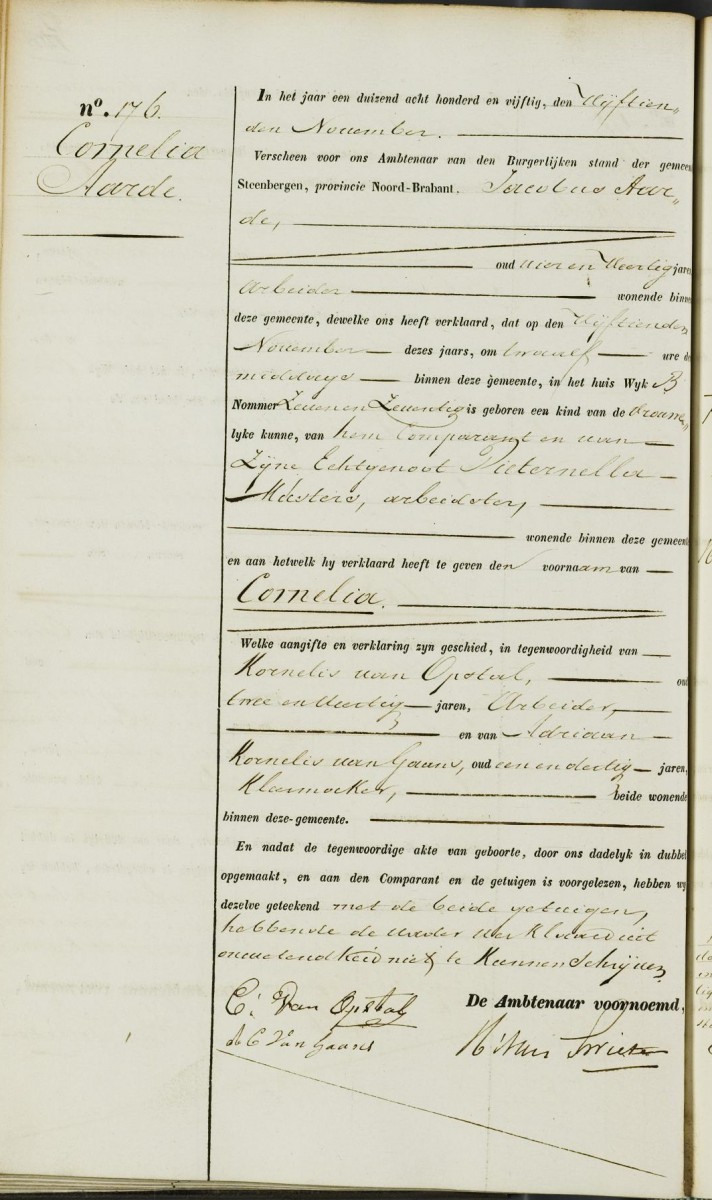 nº. 176.
Cornelia
Aarde.
In het jaar een duizend acht honderd en vijftig, den Vijftien„
den November.
Verscheen voor ons Ambtenaar van den Burgerlijken stand der gemeen
Steenbergen, provincie Noord-Brabant. Jacobus Aar„
de,
oud vier en Veertig jaren
arbeider wonende binne
deze gemeente, dewelke ons heeft verklaard, dat op den Vijftienden
November dezes jaars, om twaalf ure de
middags binnen deze gemeente, in het huis Wyk B
Nommer Zeven en Zeventig is geboren een kind van de vrouwe„
lyke kunne, van hem Comparant en van
Zijne Echtgenoot Pieternella
Musters, arbeidster,
wonende binnen deze gemeente
en aan hetwelk hy verklaard heeft te geven den voornaam van
Cornelia.
Welke aangifte en verklaring zyn geschied, in tegenwoordigheid van
Kornelis van Opstal, oud
twee en Veertig jaren, Arbeider,
en van Adriaan
Kornelis van Gaans, oud een en dertig jaren,
Kleermaker, beide wonende
binnen deze gemeente.
En nadat de tegenwoordige akte van geboorte, door ons dadelyk in dubbel
opgemaakt, en aan den Comparant en de getuigen is voorgelezen, hebben wy
dezelve geteekend met de beide getuigen,
hebbende de Vader verklaard uit
onwetendheid niet te Kunnen Schrijven
C. Van Opstal De Ambtenaar voornoemd,
A C Van Gaans